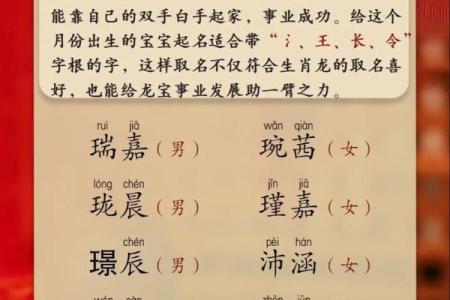 能靠自己的双手白手起家，事业成功。给这个
月份出生的宝宝起名适合带“氵、王、长、令”
字根的字，这样取名不仅符合生肖龙的取名喜
好，也能给龙宝事业发展助一臂之力。
ruì jiā wǎn qiàn
瑞嘉（男） 琬茜（女）
lóng chén jǐn jiā
珑晨（男） 瑾嘉（女）
chén pèi hán
璟辰（男） 沛涵（女）